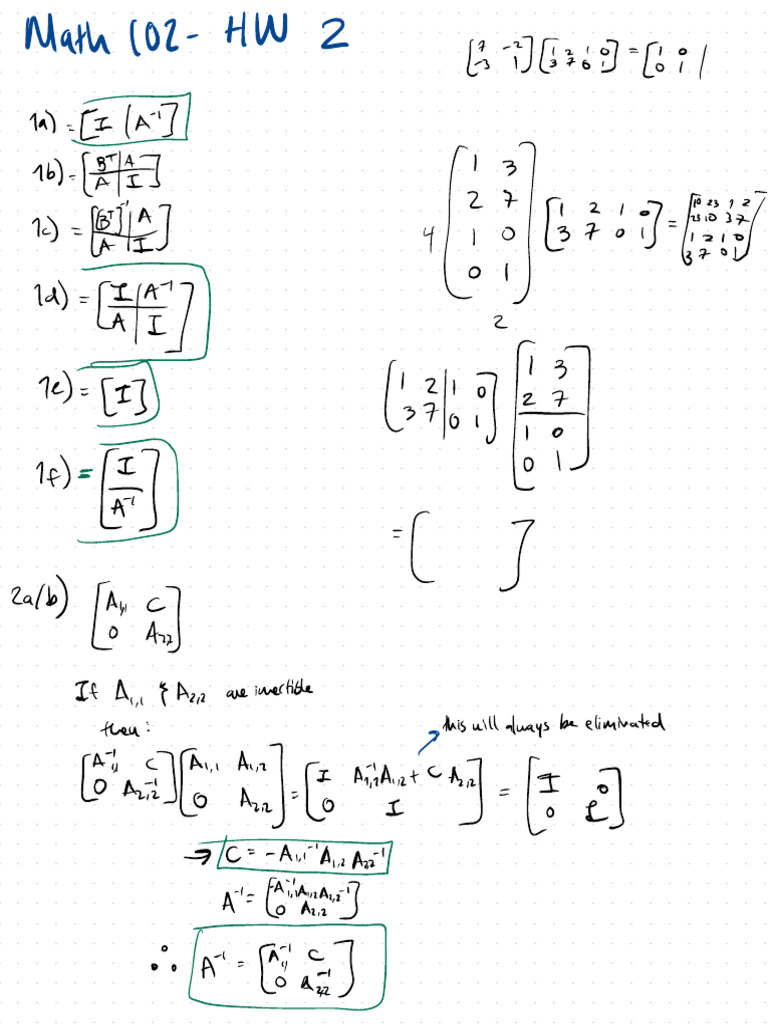 Math 102 - HW 2
[7 -2; -3 1] [1 2 1 0; 3 7 0 1] = [1 0; 0 1
1a) = [I | A⁻¹]
1b) = [Bᵀ | A; A | I]
1c) = [[Bᵀ]⁻¹ | A; A | I]
1d) = [I | A⁻¹; A | I]
1e) = [I]
1f) = [I; A⁻¹]
4 [1 3; 2 7; 1 0; 0 1] [1 2 1 0; 3 7 0 1] = [10 23 1 2; 23 10 3 7; 1 2 1 0; 3 7 0 1]
2
[1 2 | 1 0; 3 7 | 0 1] [1 3; 2 7; 1 0; 0 1]
= [ ]
2a/b) [A₁,₁ C; 0 A₂₂]
If A₁,₁ & A₂,₂ are invertible
then:
this will always be eliminated
[A₁,₁⁻¹ C; 0 A₂,₂⁻¹] [A₁,₁ A₁,₂; 0 A₂,₂] = [I A₁,₂⁻¹A₁,₂ + C A₂,₂; 0 I] = [I 0; 0 I]
→ C = -A₁,₁⁻¹ A₁,₂ A₂₂⁻¹
A⁻¹ = [-A₁,₁⁻¹A₁,₂A₂,₂⁻¹; 0 A₂,₂]
∴ A⁻¹ = [A₁,₁⁻¹ C; 0 A₂₂⁻¹]